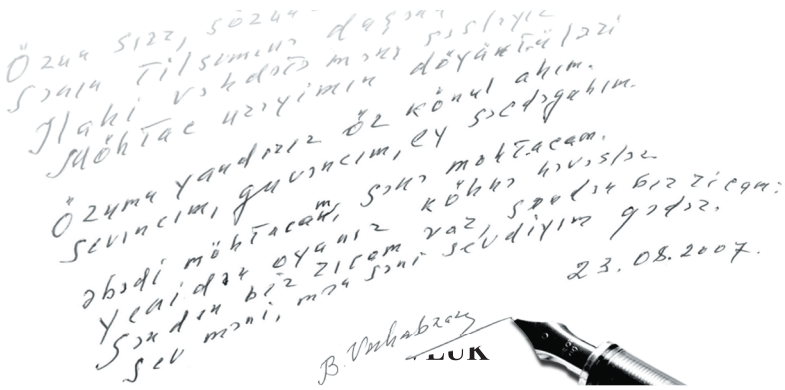 Özün sirr, sözün
Sənin tilsiminə
İlahi vəhdətə məni səsləyir
Möhtac ürəyimin döyüntüləri
Özümə yandırır öz könül ahım.
Sevincim, güvəncim, ey səcdəgahım.
əbədi möhtacam, sənə möhtacam.
Yenidən oyanır köhnə həvəslər
Səndən bir ricam var, səndən bir ricam:
Sev məni, mən səni sevdiyim qədər.
23.08.2007.
B. Vahabzadə
LUK